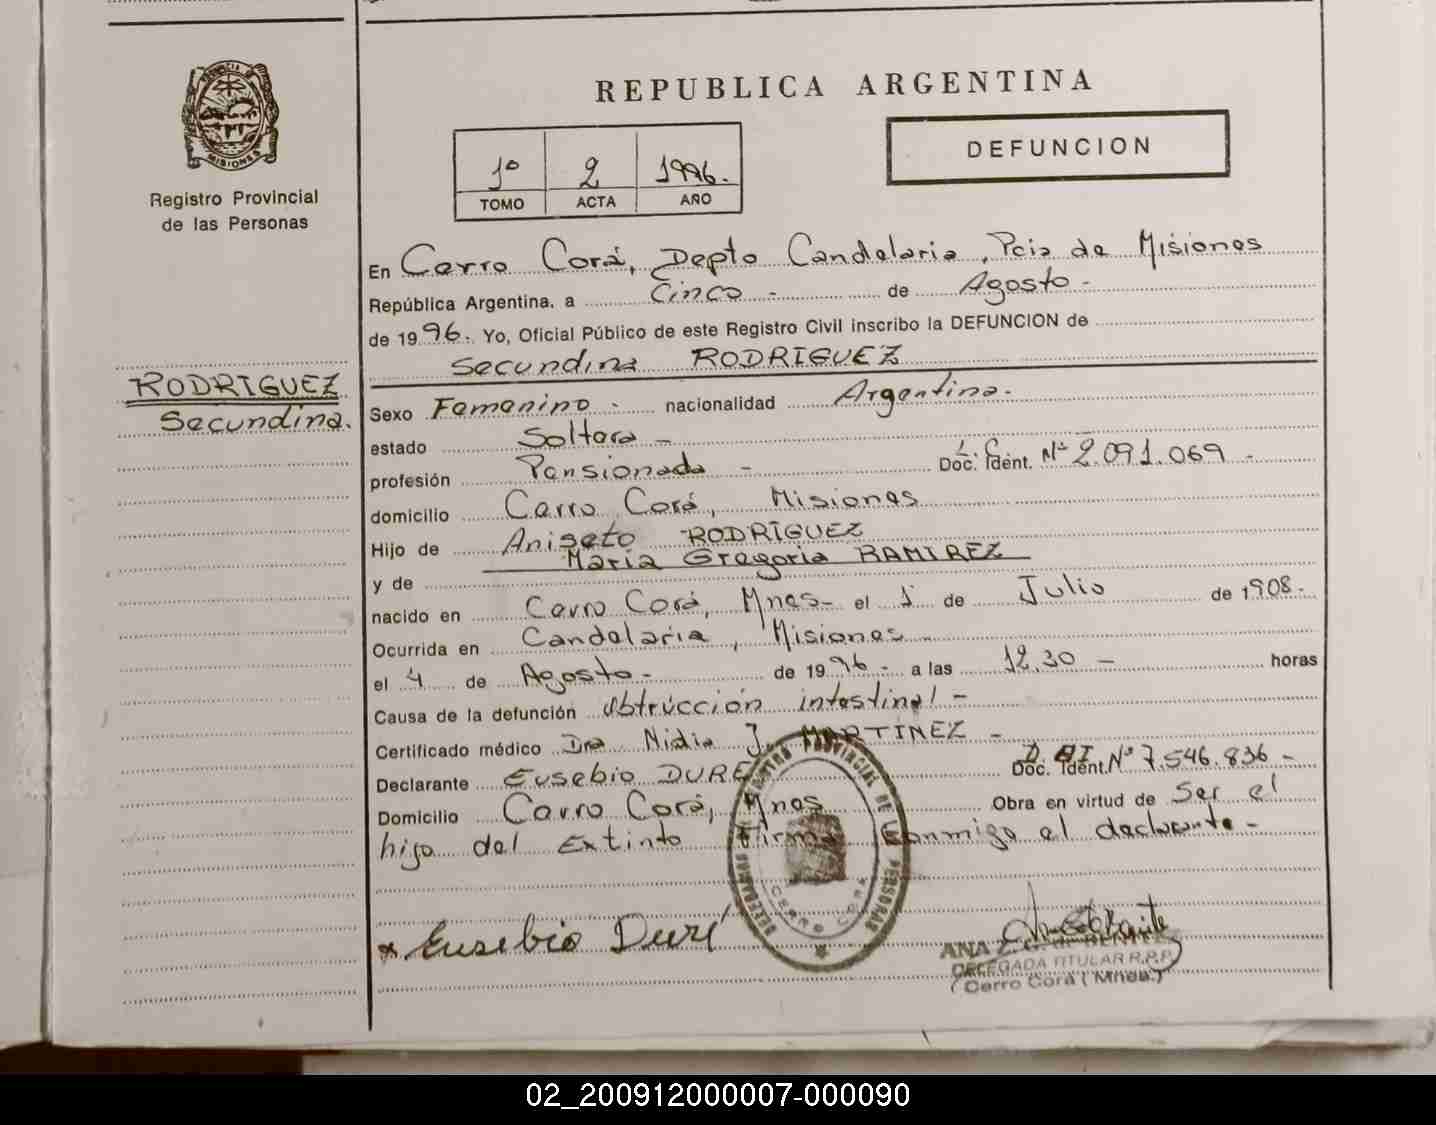 PROVINCIA DE
MISIONES
Registro Provincial
de las Personas
RODRIGUEZ
Secundina.
REPUBLICA ARGENTINA
1º 2 1996.
TOMO ACTA AÑO
DEFUNCION
En Cerro Corá, Depto Candelaria, Pcia de Misiones
República Argentina, a Cinco - de Agosto -
de 1996. Yo, Oficial Público de este Registro Civil inscribo la DEFUNCION de
Secundina RODRIGUEZ
Sexo Femenino - nacionalidad Argentina.
estado Soltera -
profesión Pensionada - Doc. Ident. L.C. Nº 2.091.069 -
domicilio Cerro Corá, Misiones
Hijo de Aniseto RODRÍGUEZ
y de María Gregoria RAMIREZ
nacido en Cerro Corá, Mnes- el 1º de Julio de 1908.
Ocurrida en Candelaria, Misiones -
el 4 de Agosto - de 1996 - a las 12.30 - horas
Causa de la defunción obtrucción intestinal -
Certificado médico Dra Nidia J. MARTÍNEZ -
Declarante Eusebio DURÉ Doc. Ident. D.N.I Nº 7.546.836 -
Domicilio Cerro Corá, Mnes Obra en virtud de Ser el
hijo del Extinto Firma Conmigo el declarante -
REGISTRO PROVINCIAL DE LAS PERSONAS
CERRO CORA
* Eusebio Duré
ANA DE BENITEZ
DELEGADA TITULAR R.P.P.
Cerro Corá (Mnes.)
02_200912000007-000090